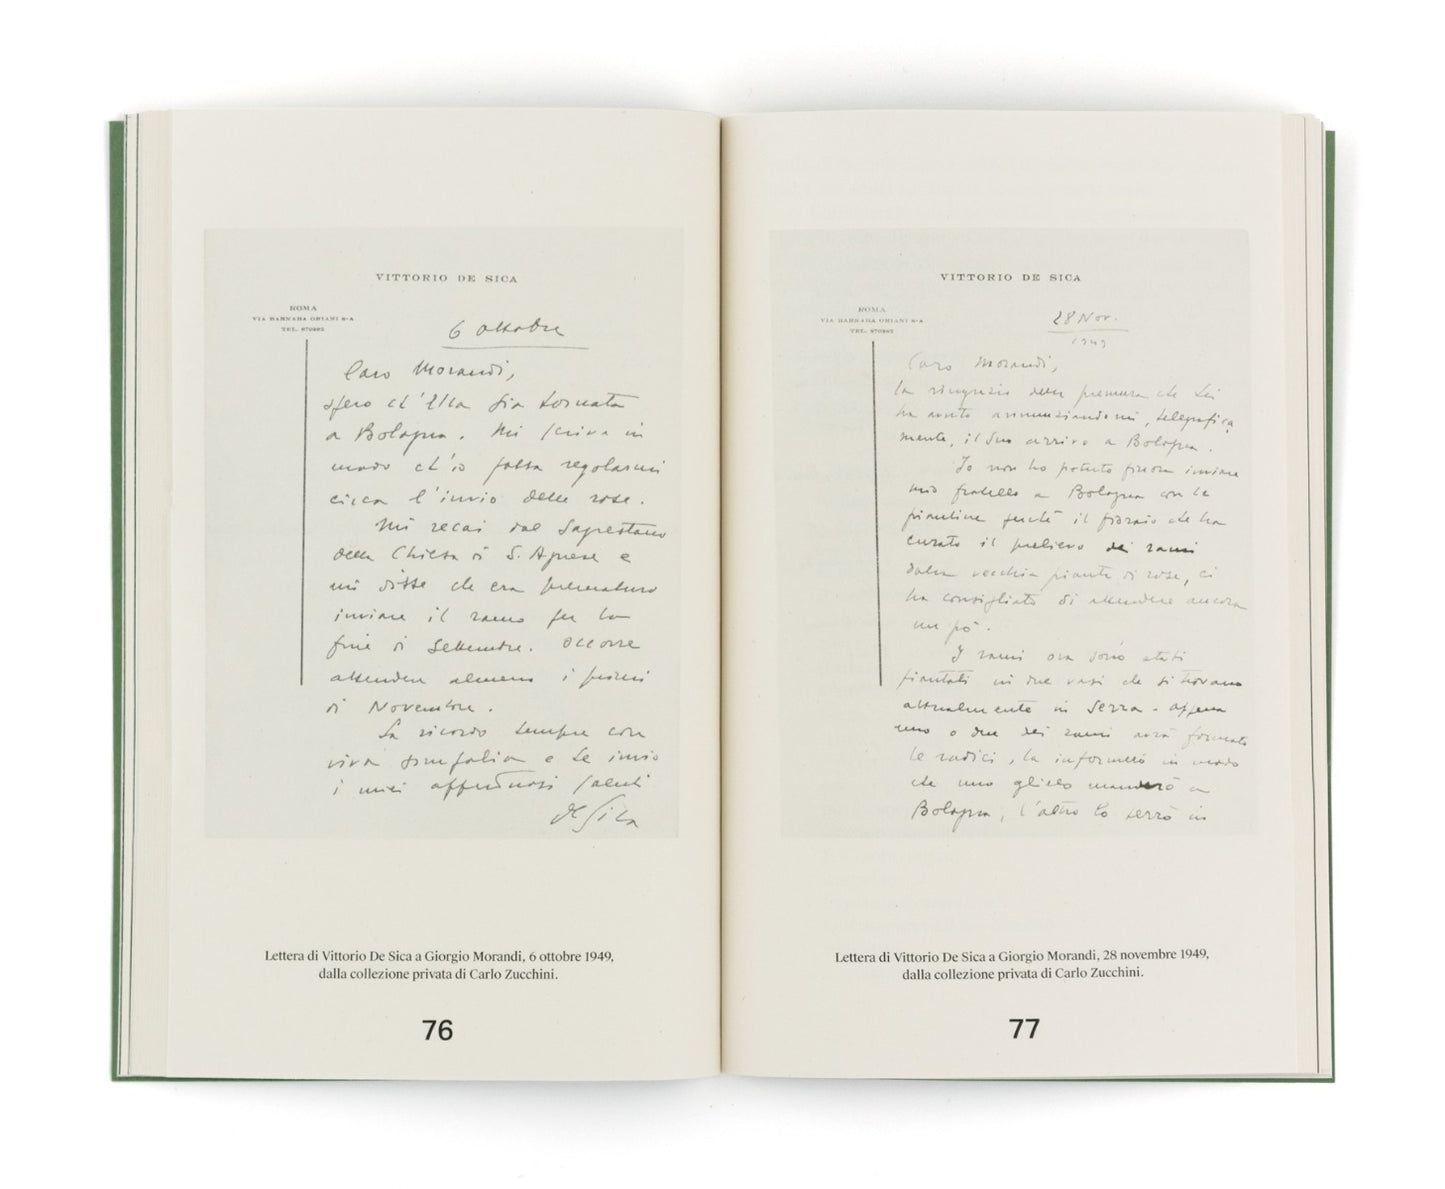 VITTORIO DE SICA
ROMA
VIA BARNABA ORIANI 8-A
TEL. 870982
6 ottobre
Caro Morandi,
spero ch'Ella sia tornata
a Bologna. Mi scriva in
modo ch'io possa regolarmi
circa l'invio delle rose.
Mi recai dal Sagrestano
della Chiesa di S. Agnese e
mi disse che era prematuro
inviare il ramo per la
fine di Settembre. Occorre
attendere almeno i primi
di Novembre.
La ricordo sempre con
viva simpatia e Le invio
i miei affettuosi saluti
De Sica
Lettera di Vittorio De Sica a Giorgio Morandi, 6 ottobre 1949,
dalla collezione privata di Carlo Zucchini.
76
VITTORIO DE SICA
ROMA
VIA BARNABA ORIANI 8-A
TEL. 870982
28 Nov.
1949
Caro Morandi,
la ringrazio della premura che Lei
ha avuto annunziandomi, telegrafica
mente, il Suo arrivo a Bologna.
Io non ho potuto finora inviare
mio fratello a Bologna con le
piantine perché il fioraio che ha
curato il prelievo dei rami
dalla vecchia pianta di rose, ci
ha consigliato di attendere ancora
un pò.
I rami ora sono stati
piantati in due vasi che si trovano
attualmente in serra. Appena
uno o due dei rami avrà formato
le radici, la informerò in modo
che uno glielo manderò a
Bologna, l'altro lo terrò in
Lettera di Vittorio De Sica a Giorgio Morandi, 28 novembre 1949,
dalla collezione privata di Carlo Zucchini.
77